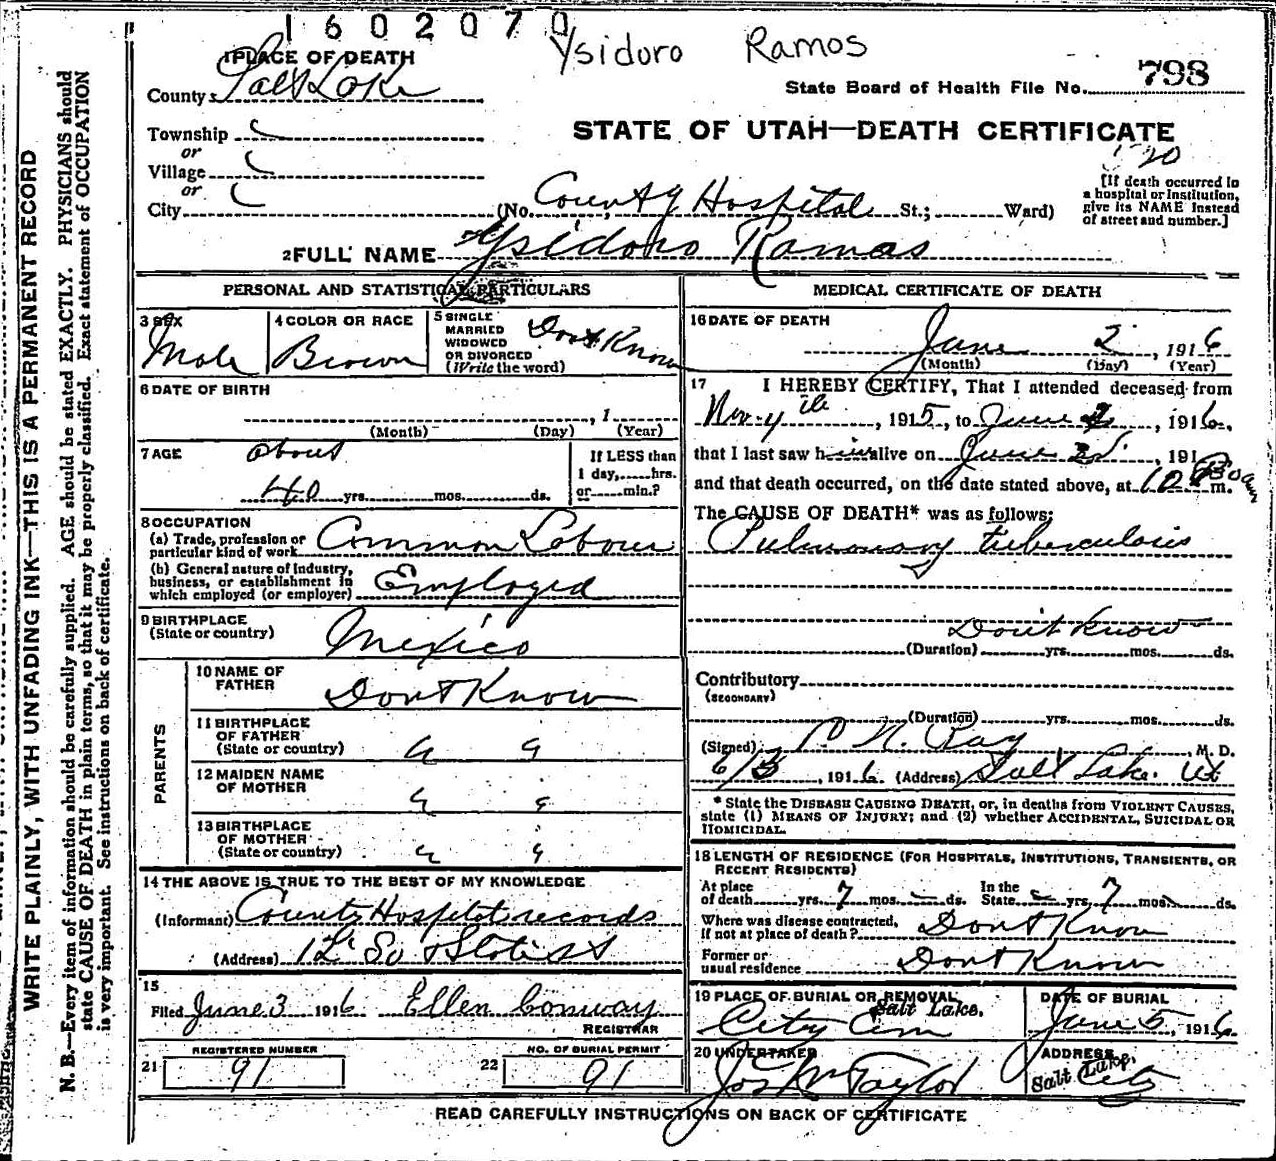 1602070
Ysidoro Ramos
1 PLACE OF DEATH
County Salt Lake
State Board of Health File No. 798
Township
or
STATE OF UTAH—DEATH CERTIFICATE
Village
or
City
(No. County Hospital St.; Ward)
[If death occurred in
a hospital or institution,
give its NAME instead
of street and number.]
2 FULL NAME Ysidoro Ramos
PERSONAL AND STATISTICAL PARTICULARS
3 SEX
Male
4 COLOR OR RACE
Brown
5 SINGLE
MARRIED
WIDOWED
OR DIVORCED
(Write the word)
Dont Know
6 DATE OF BIRTH
, 1
(Month) (Day) (Year)
7 AGE
about
40 yrs. mos. ds.
If LESS than
1 day, hrs.
or min.?
8 OCCUPATION
(a) Trade, profession or
particular kind of work Common Labour
(b) General nature of industry,
business, or establishment in
which employed (or employer) Employed
9 BIRTHPLACE
(State or country) Mexico
PARENTS
10 NAME OF
FATHER Dont Know
11 BIRTHPLACE
OF FATHER
(State or country) " "
12 MAIDEN NAME
OF MOTHER " "
13 BIRTHPLACE
OF MOTHER
(State or country) " "
14 THE ABOVE IS TRUE TO THE BEST OF MY KNOWLEDGE
(Informant) County Hospital records
(Address) So State St
15
Filed June 3 1916 Ellen Conway
REGISTRAR
REGISTERED NUMBER
21 91
NO. OF BURIAL PERMIT
22 91
MEDICAL CERTIFICATE OF DEATH
16 DATE OF DEATH
June 2, 1916
(Month) (Day) (Year)
17 I HEREBY CERTIFY, That I attended deceased from
Nov. 4th, 1915, to June 2, 1916,
that I last saw him alive on June 2d, 191
and that death occurred, on the date stated above, at m.
The CAUSE OF DEATH* was as follows:
Pulmonary tuberculosis
Don't Know
(Duration) yrs. mos. ds.
Contributory
(SECONDARY)
(Duration) yrs. mos. ds.
(Signed) Ray, M. D.
6/3, 1916 (Address) Salt Lake. Ut
* State the DISEASE CAUSING DEATH, or, in deaths from VIOLENT CAUSES,
state (1) MEANS OF INJURY; and (2) whether ACCIDENTAL, SUICIDAL OR
HOMICIDAL.
18 LENGTH OF RESIDENCE (FOR HOSPITALS, INSTITUTIONS, TRANSIENTS, OR
RECENT RESIDENTS)
At place
of death yrs. 7 mos. — ds.
In the
State — yrs. 7 mos. ds.
Where was disease contracted,
if not at place of death? Dont Know
Former or
usual residence Dont Know
19 PLACE OF BURIAL OR REMOVAL
Salt Lake.
City Cem
DATE OF BURIAL
June 5, 1916
20 UNDERTAKER
Jos Wm Taylor
ADDRESS
Salt Lake.
City
READ CAREFULLY INSTRUCTIONS ON BACK OF CERTIFICATE
WRITE PLAINLY, WITH UNFADING INK—THIS IS A PERMANENT RECORD
N. B.—Every item of information should be carefully supplied. AGE should be stated EXACTLY. PHYSICIANS should
state CAUSE OF DEATH in plain terms, so that it may be properly classified. Exact statement of OCCUPATION
is very important. See instructions on back of certificate.